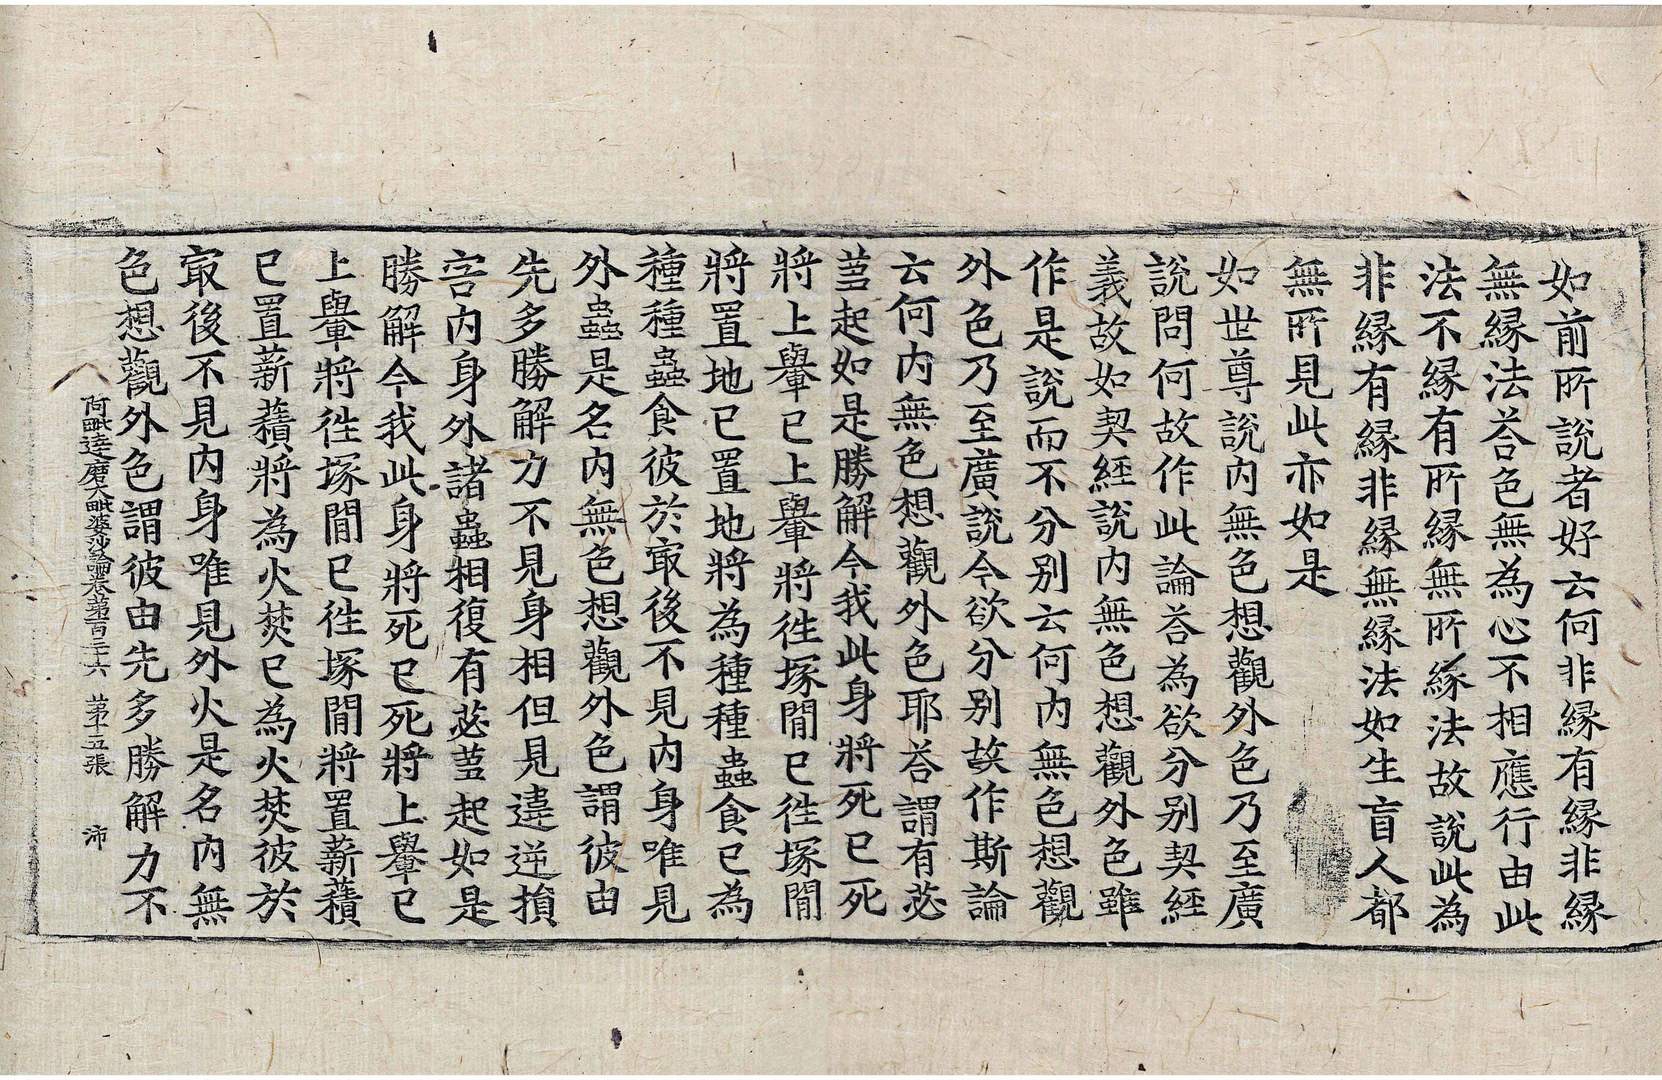 如前所說者好云何非緣有緣非緣
無緣法荅色無為心不相應行由此
法不緣有所緣無所緣法故說此為
非緣有緣非緣無緣法如生盲人都
無所見此亦如是
如世尊說內無色想觀外色乃至廣
說問何故作此論荅為欲分别契經
義故如契經說內無色想觀外色雖
作是說而不分别云何內無色想觀
外色乃至廣說今欲分别故作斯論
云何內無色想觀外色耶荅謂有苾
蒭起如是勝解今我此身將死已死
將上轝已上轝將徃塚閒已徃塚閒
將置地已置地將為種種蟲食已為
種種蟲食彼於㝡後不見內身唯見
外蟲是名內無色想觀外色謂彼由
先多勝解力不見身相但見違逆損
害內身外諸蟲相復有苾蒭起如是
勝解今我此身將死已死將上轝已
上轝將徃塚閒已徃塚閒將置薪𧂐
已置薪𧂐將為火焚已為火焚彼於
㝡後不見內身唯見外火是名內無
色想觀外色謂彼由先多勝解力不
阿毗達磨大毗婆沙論卷苐百三六 苐十五張 沛